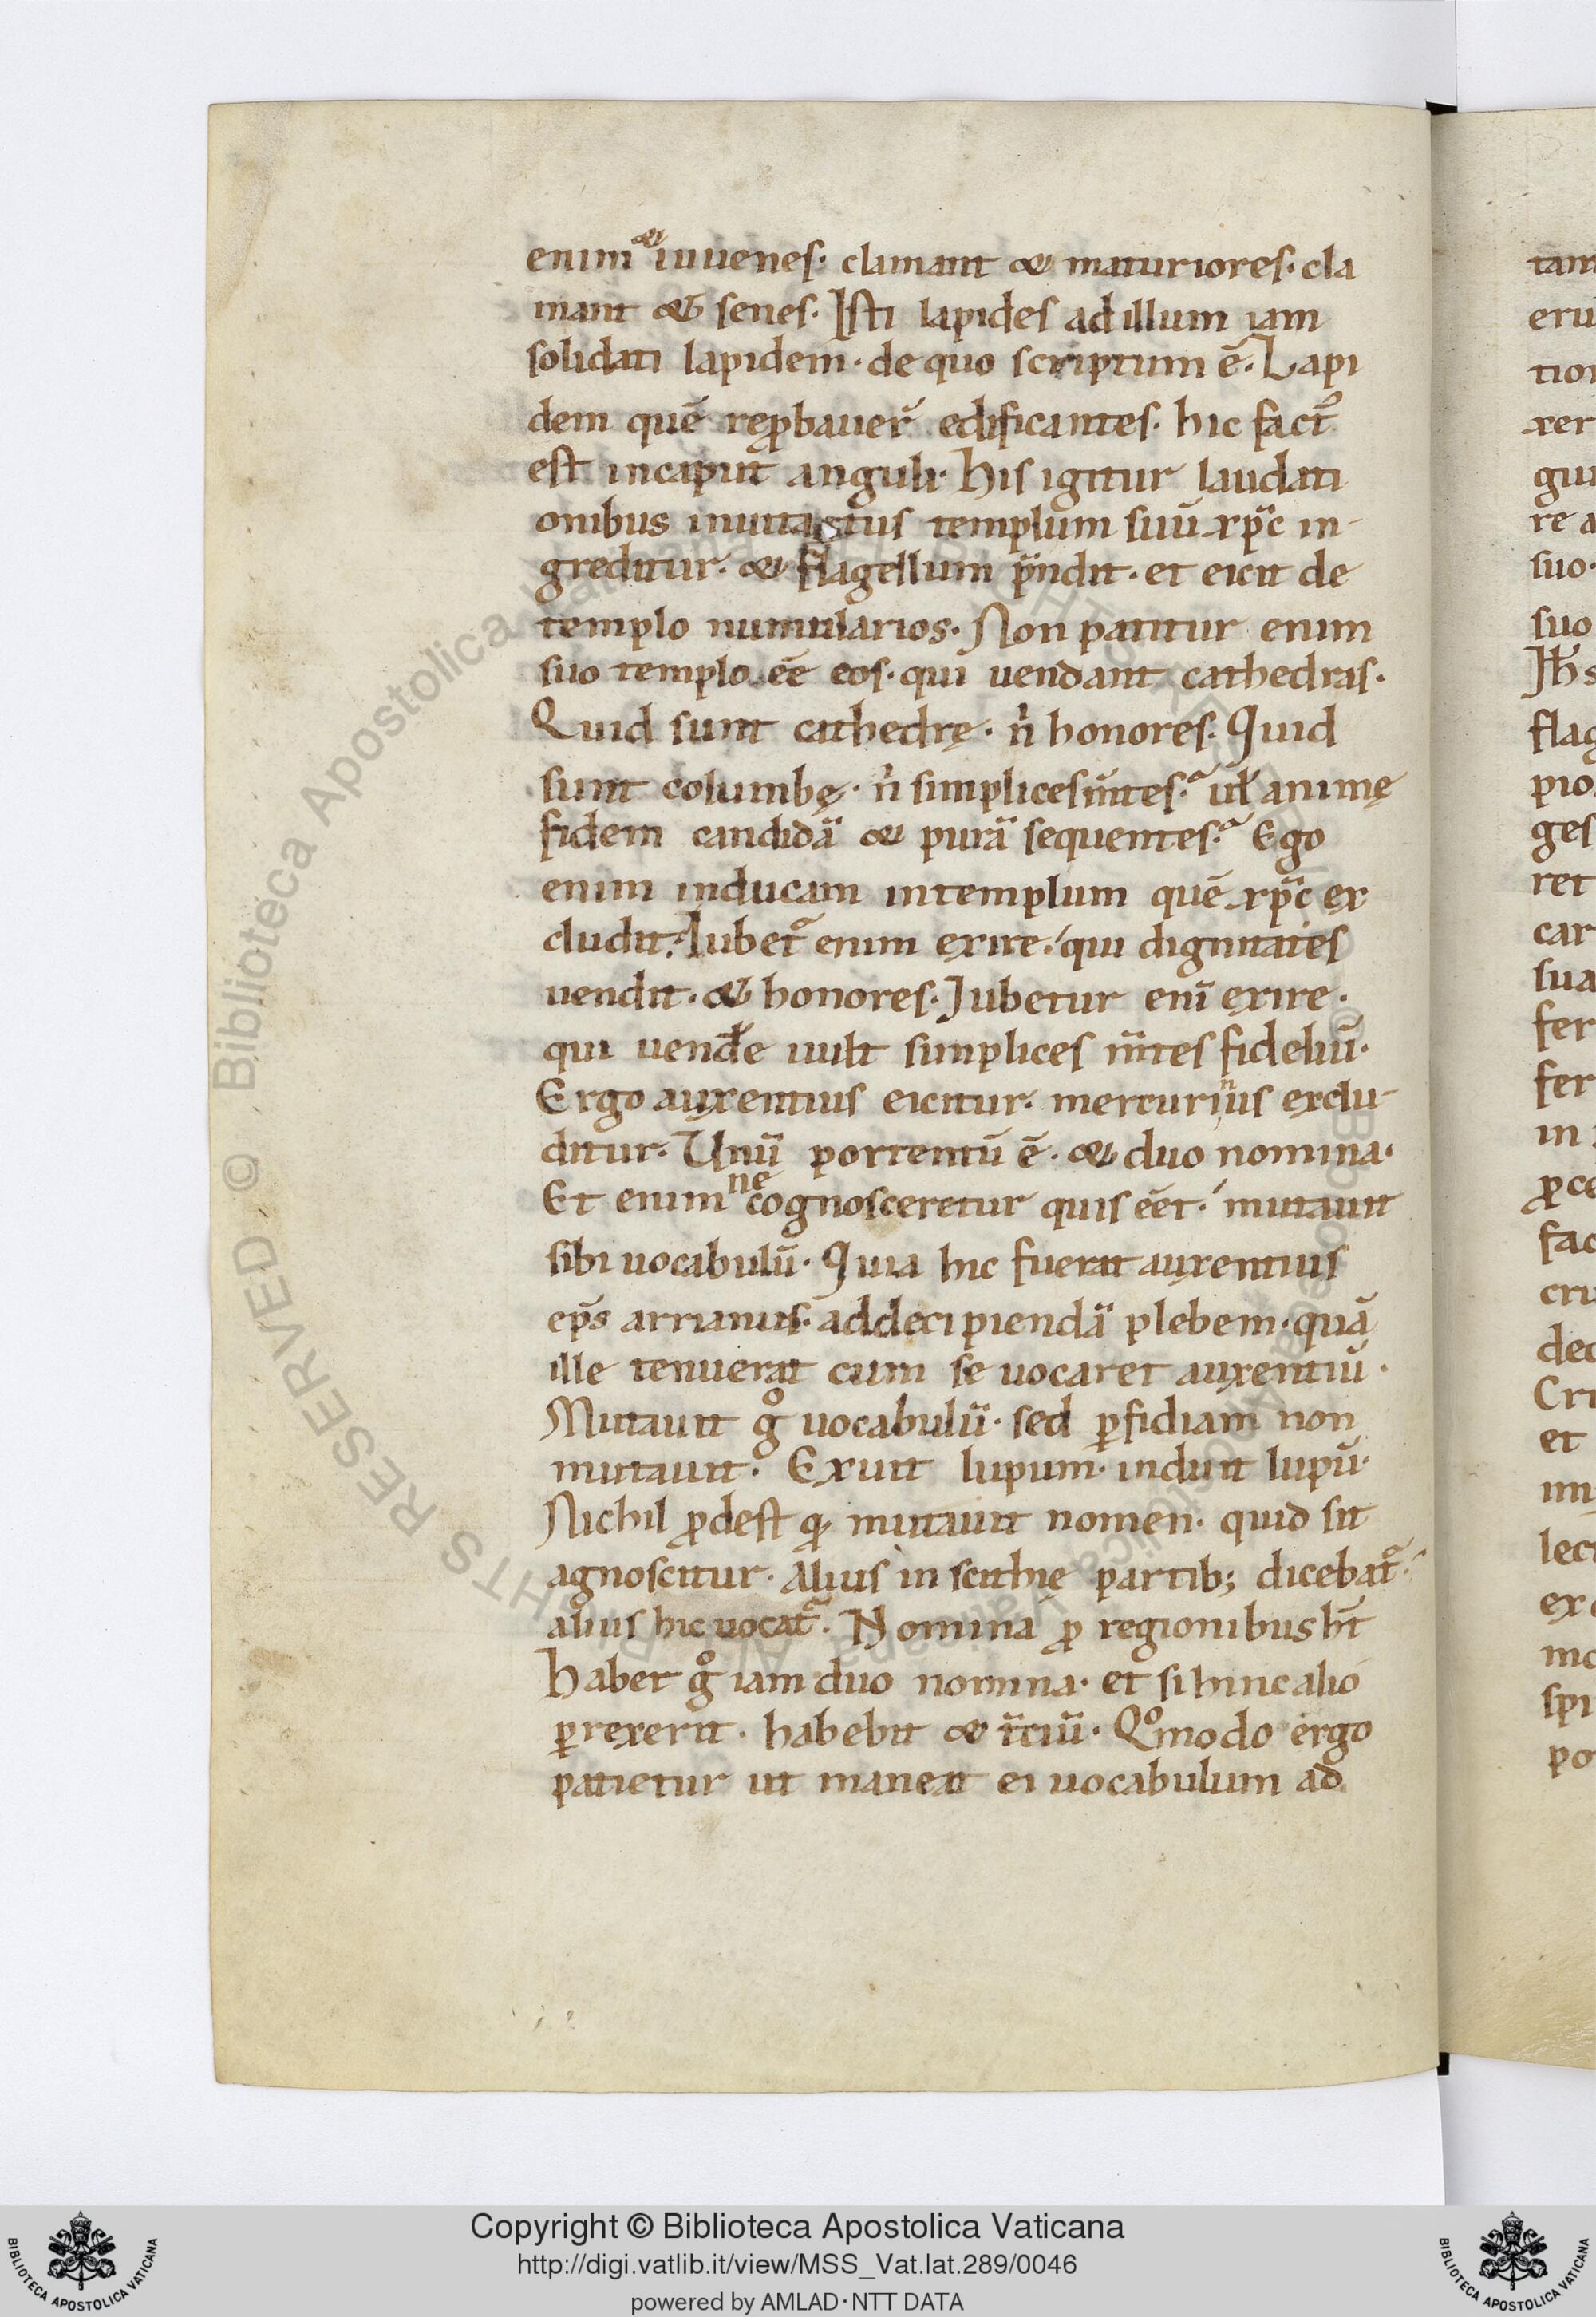 enim &iuuenes· clamant & maturiores· cla
mant & senes· Isti lapides adillum iam
solidati lapidem· de quo scriptum ē· Lapi
dem quē rep̱bauer̄ edificantes· hic fact᷒
est incaput anguli· His igitur laudati
onibus inuitatus templum suū xp̄c in-
greditur· & flagellum p̄ndit· et eicit de
templo numularios· Non patitur enim
suo templo ēe eos· qui uendant cathedras·
Quid sunt cathedrę· n̓ honores· Quid
sunt columbę· n̓ simplices m̄tes· ul̄ animę
fidem candidā & purā sequentes· Ego
enim inducam intemplum quē xp̄c ex
cludit· Iubet᷒ enim exire· qui dignitates
uendit· & honores· Iubetur eni̅ exire·
qui uend̄e uult simplices m̄tes fideliū·
Ergo auxentius eicitur· mercurinus exclu-
ditur· Unū portentū ē· & duo nomina·
Et enim ne cognosceretur quis ēet· mutauit
sibi uocabulū· Quia hic fuerat auxentius
ep̄s arrianus· addecipiendā plebem· quā
ille tenuerat cum se uocaret auxentiū·
Mutauit gͦ uocabulū· sed ꝑfidiam non
mutauit· Exuit lupum· induit lupū·
Nichil ꝓdest qͥ mutauit nomen· quid sit
agnoscitur· Alius in scithię partib; dicebat᷒·
alius hic uocat᷒· Nomina ꝓ regionibus hn̄t
Habet gͦ iam duo nomina· et si hinc alio
ꝑrexerit· habebit & t̄ciū· Qͦmodo ergo
patietur ut maneat ei uocabulum ad
tam
eru
tion
xer
gui
re a
suo·
suo
Ih̄s
flag
pio
ges
ret
car
sua
fer
fer
in
ꝓce
fac
cru
dec
Cri
et
im
lect
exc
mo
spi
po
Biblioteca Apostolica Vaticana
RIGHTS RESERVED © Biblioteca Apostolica Vaticana
Copyright © Biblioteca Apostolica Vaticana
http://digi.vatlib.it/view/MSS_Vat.lat.289/0046
powered by AMLAD·NTT DATA
BIBLIOTECA APOSTOLICA VATICANA
BIBLIOTECA APOSTOLICA VATICANA